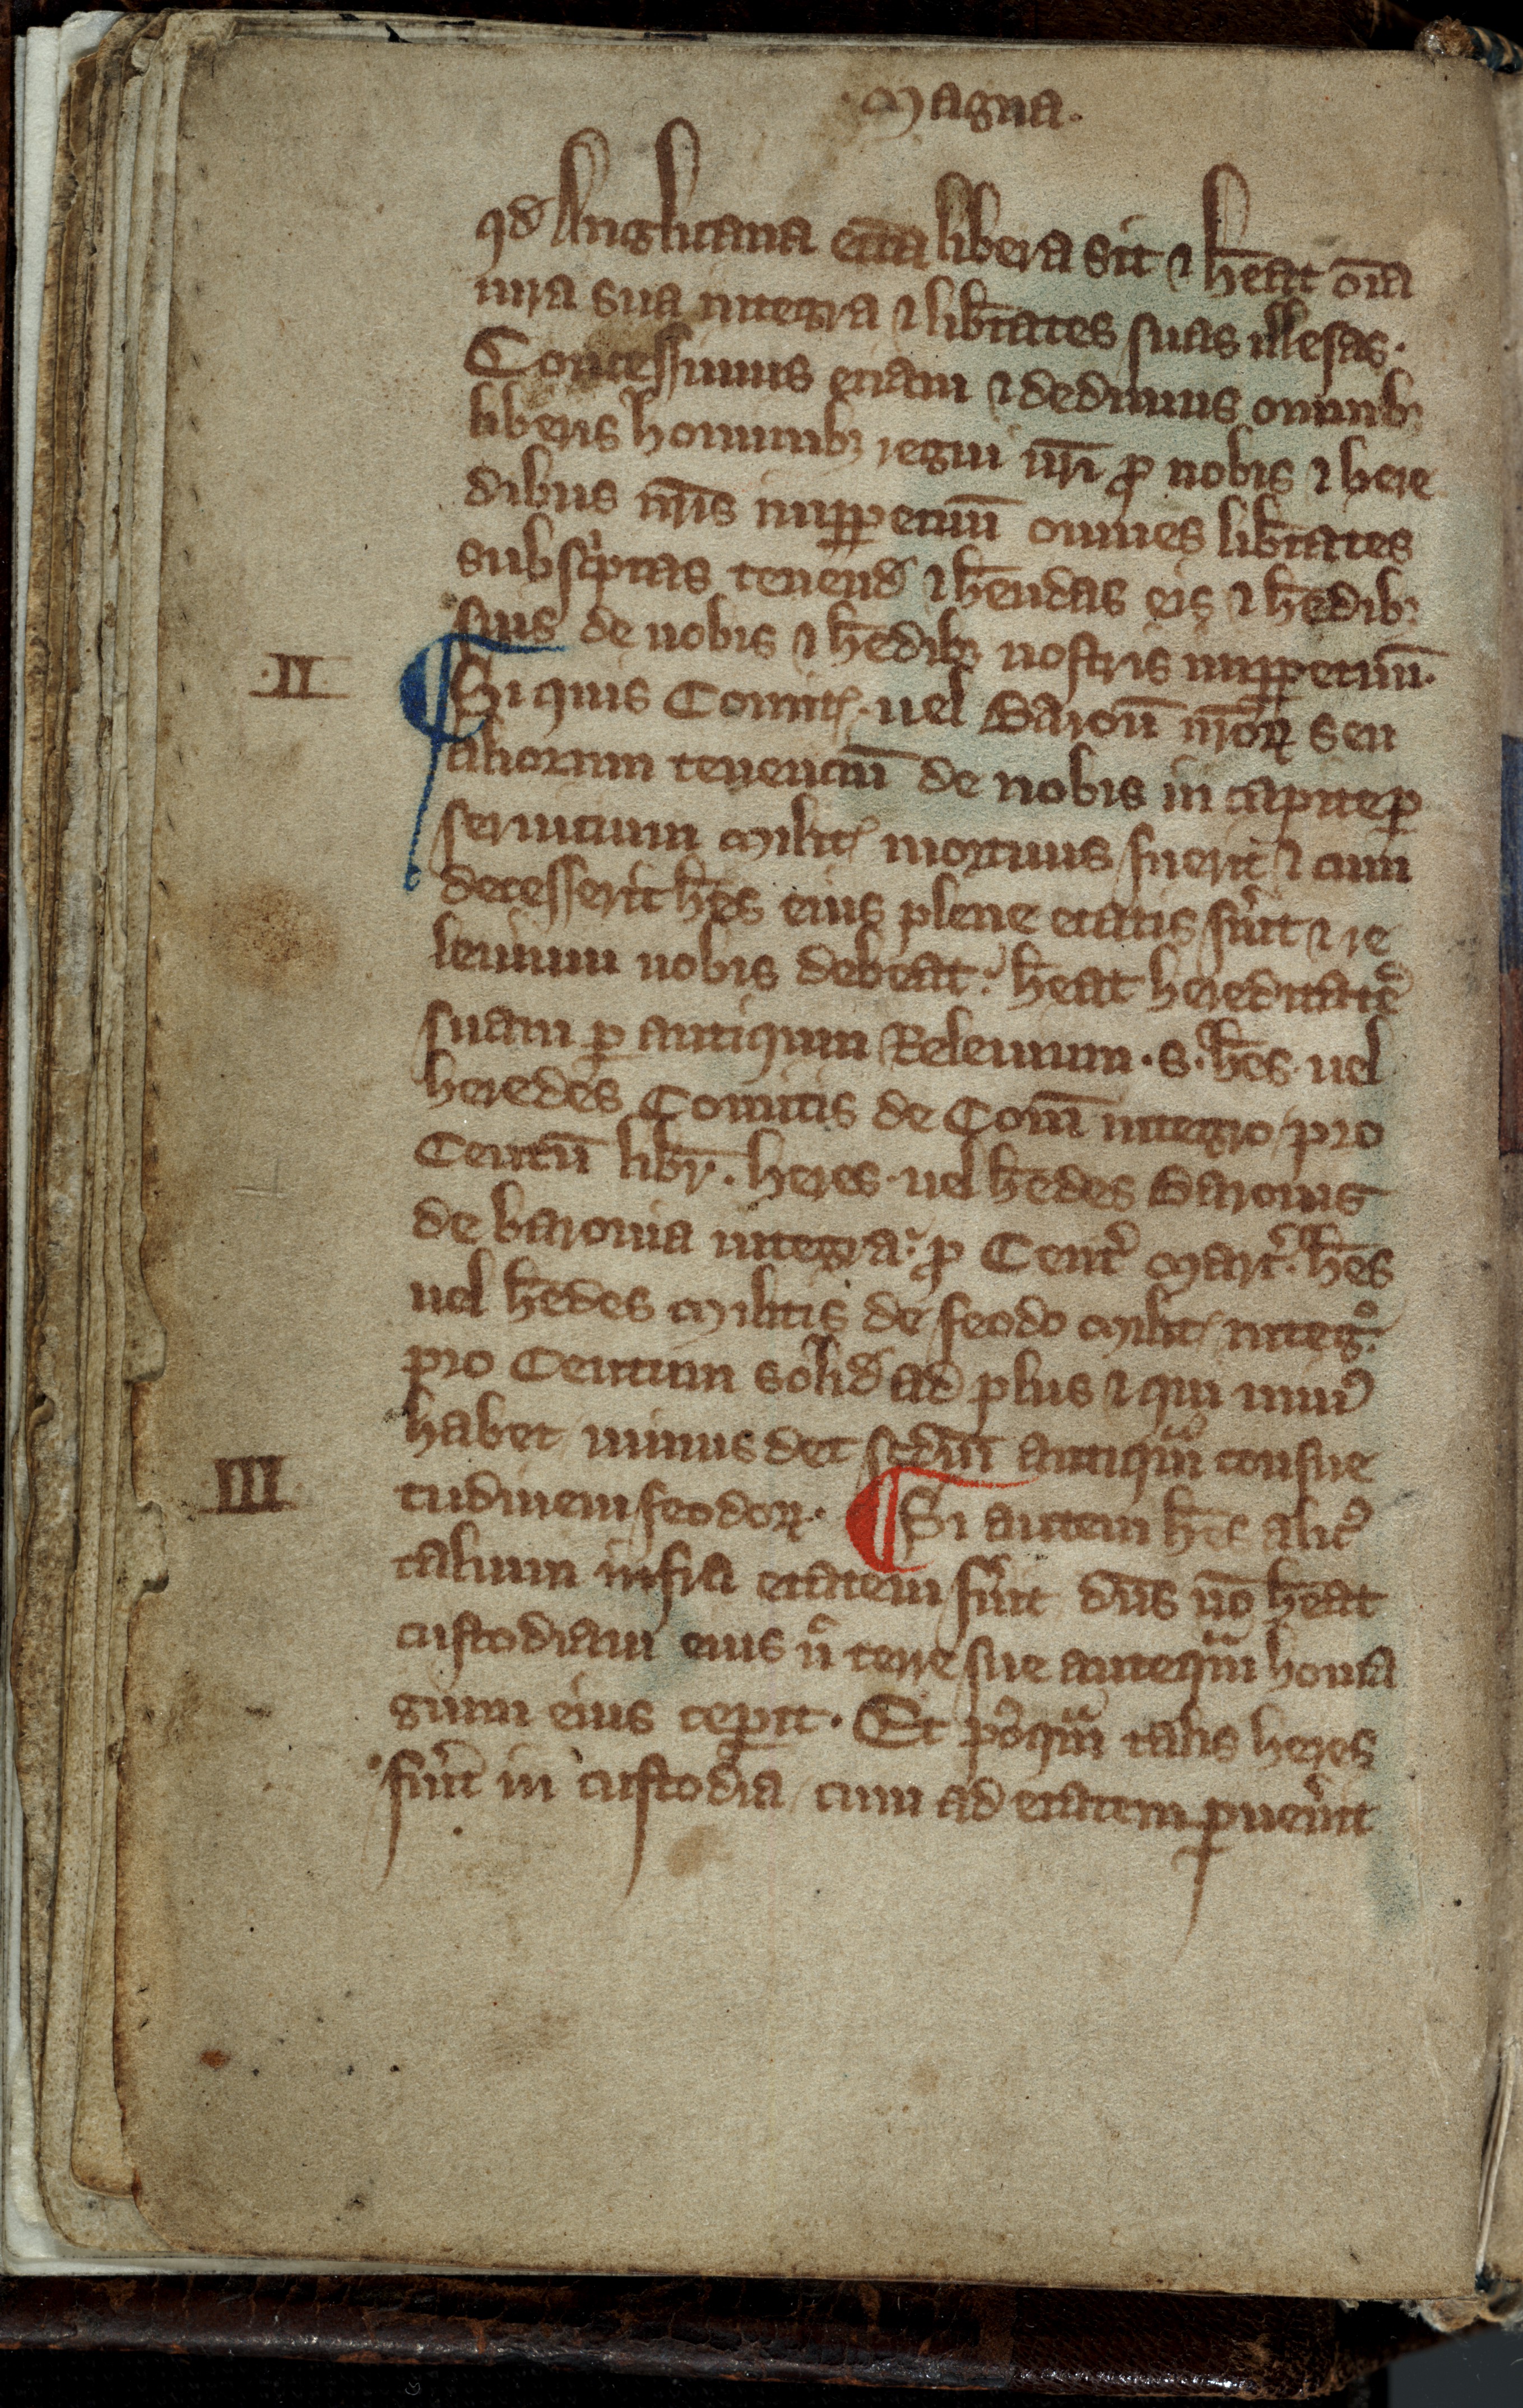 Magna.
qd Anglicana ecc̄a libera sit ⁊ h̄eat om̄ia
iura sua integra ⁊ lib̄tates suas illesas.
Concessimus etiam ⁊ dedimus omnibꝫ
liberis hominibꝫ regni nr̄i ꝓ nobis ⁊ here
dibus nr̄is imꝑpetuū omnes lib̄tates
subsc'ptas tenend ⁊ h̄endas eis ⁊ h̄edibꝫ
suis de nobis ⁊ h̄edibꝫ nostris imꝑpetuū.
.II. ¶ Si quis Comit. uel Baron̄ nr̄oꝝ seu
aliorum tenenciū de nobis in capite ꝑ
seruicium Milit mortuus fuerit ⁊ cum
decesserit h̄es eius plene etatis fu'it ⁊ re
leuium nobis debeat: h̄eat hereditatē
suam ꝑ antiquum Releuium. s. h̄es uel
heredes Comitis de Com̄ integro pro
Centū libr̄. heres uel h̄edes Baronis
de baronia integra: ꝓ Cent' Marc'. h̄es
uel h̄edes Militis de feodo Milit integº.
pro Centum solid ad plus ⁊ qui min'
habet minus det scd̄m antiquā consue
III tudinem feodoꝝ. ¶ Si autem h̄es alic'
talium infra etatem fu'it dn̄s uº h̄eat
custodiam eius n̄ terre sue antequā homa
gium eius ceꝑit. Et p'quā talis heres
fu'it in custodia cum ad etatem ꝑuen'it